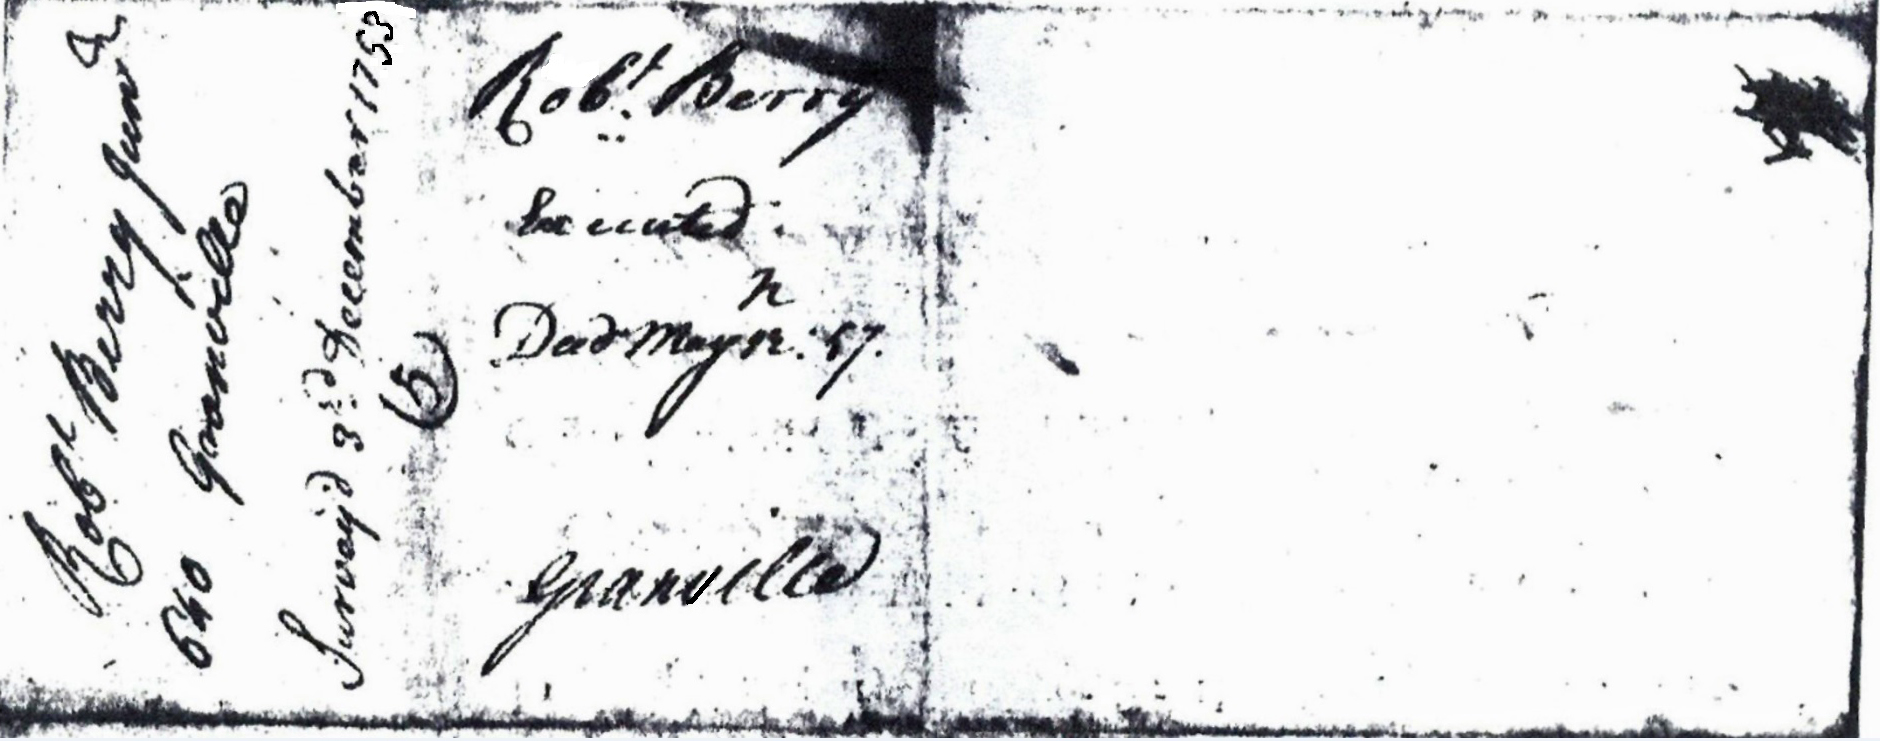 Robt Berry Junr
640 Granville
Survey'd 3rd December 1753
Robt. Berry
Executed
Deed May 12. 57.
Granville